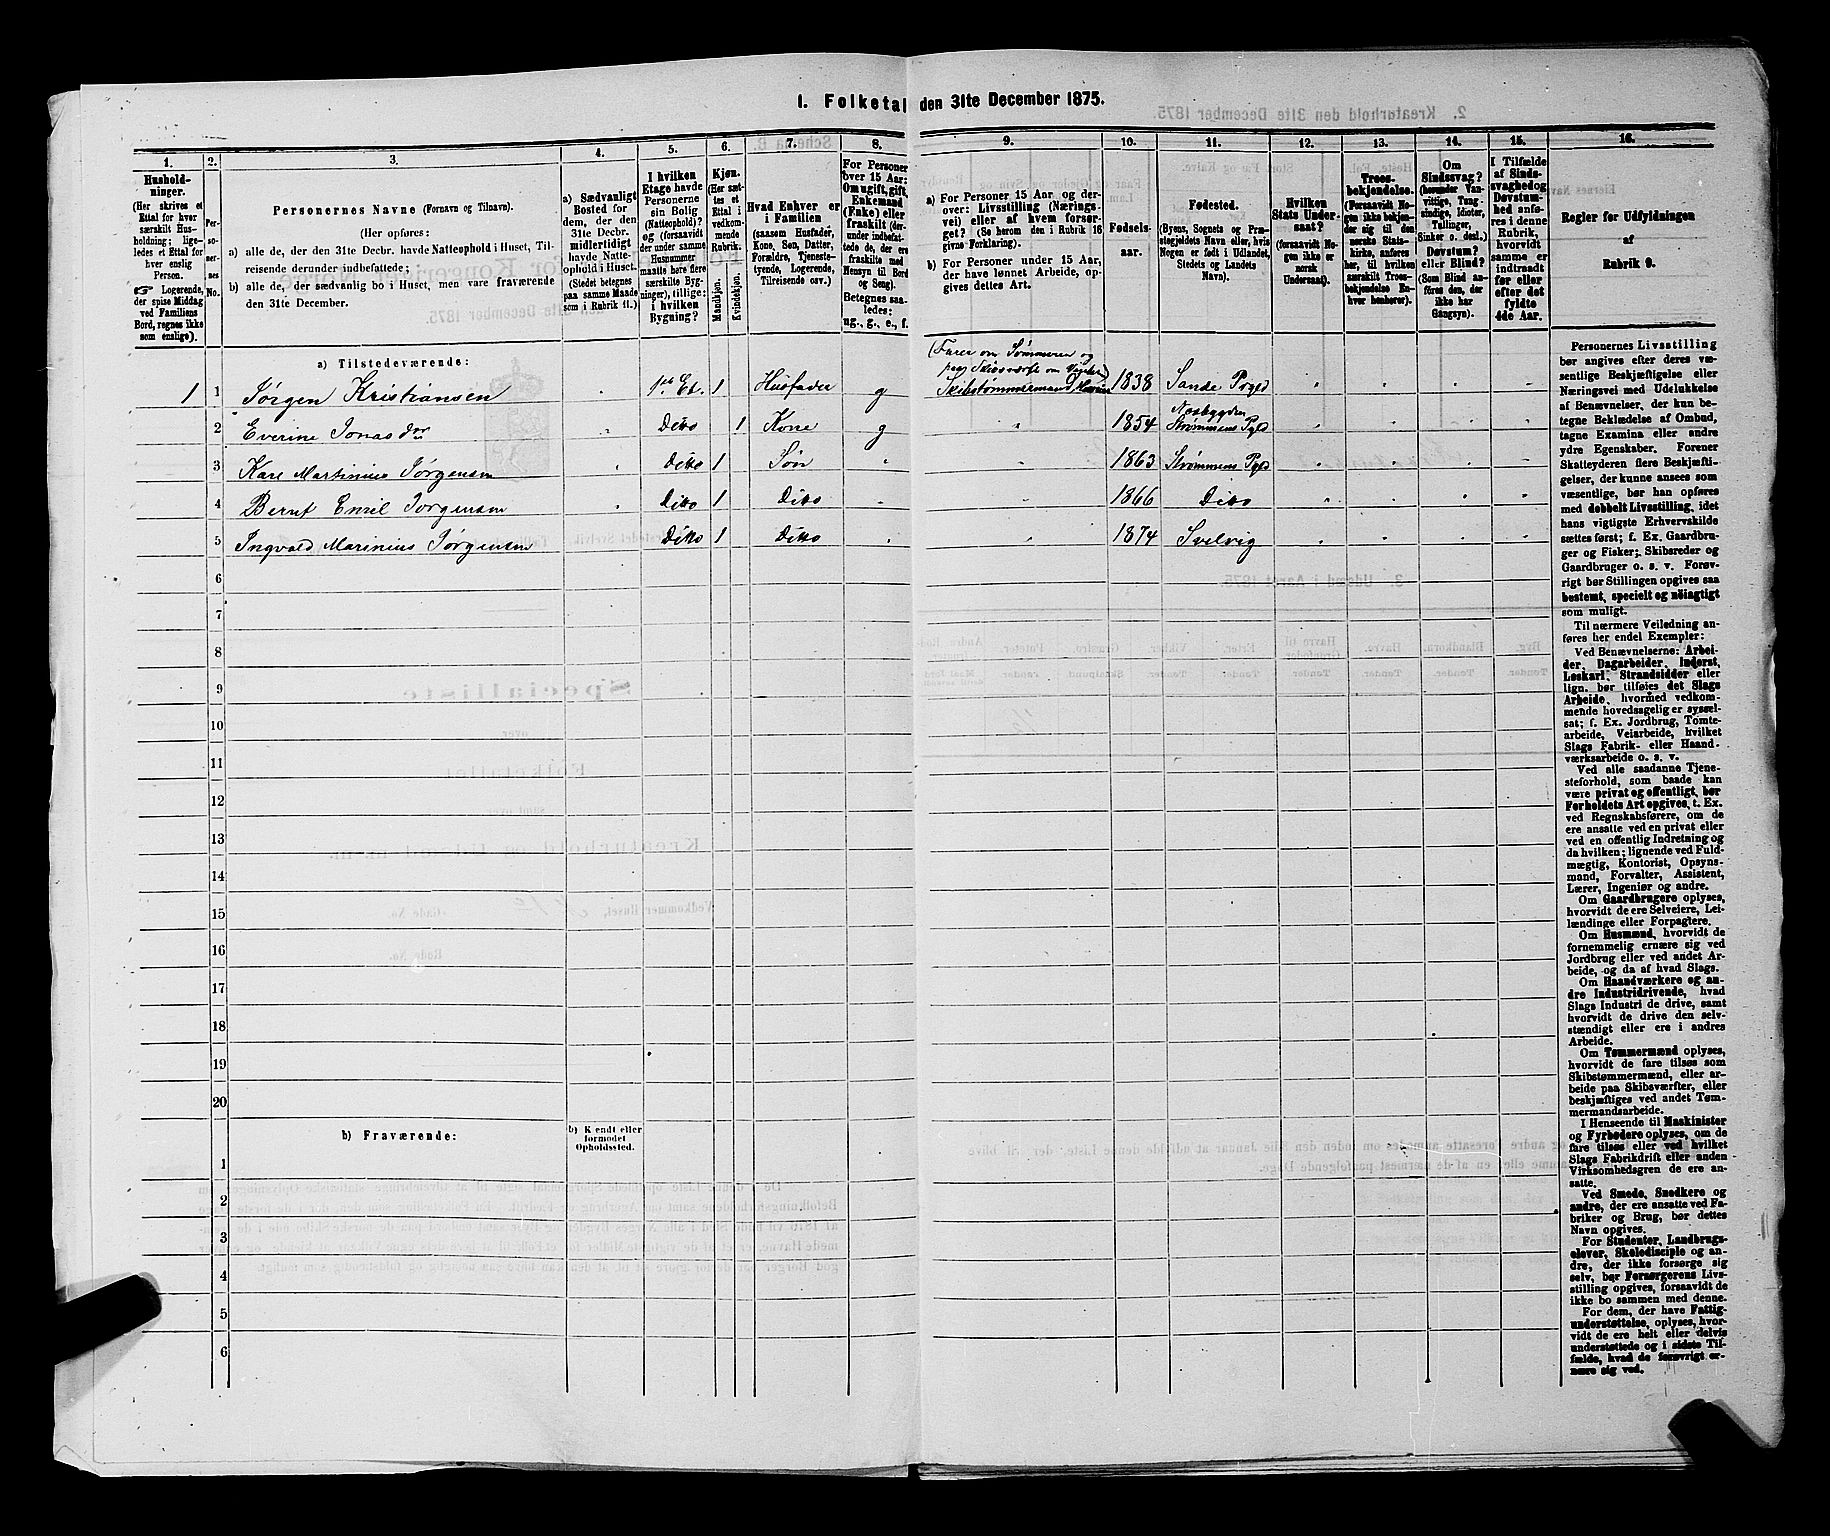 1. Folketal den 31te December 1875.
1.
Hushold-
ninger.
(Her skrives et
Ettal for hver
særskilt Hus-
holdning; lige-
ledes et Ettal for
hver enslig
Person.
☞ Logerende,
der spise Middag
ved Familiens
Bord, regnes ikke
som enslige).
2.
Per-
so-
ner-
nes
No.
3.
Personernes Navne (Fornavn og Tilnavn).
(Her opføres:
a) alle de, der den 31te Decbr. havde Natteophold i Huset, Til-
reisende derunder indbefattede;
b) alle de, der sædvanlig bo i Huset, men vare fraværende
den 31te December.
4.
a) Sædvanligt
Bosted for
dem, der den
31te Decbr.
midlertidigt
havde Natte-
ophold i Huset.
(Stedet betegnes
paa samme Maade
som i Rubrik 11.)
5.
I hvilken
Etage havde
Personerne
sin Bolig
(Natteophold)?
og (forsaavidt
der under samme
Husnummer
maatte høre flere
særskilte Byg-
ninger), tillige:
i hvilken
Bygning?
6.
Kjøn.
(Her sæt-
tes et
Ettal i
vedkom-
mende
Rubrik.
Mandkjøn.
Kvindekjøn.
7.
Hvad Enhver er
i Familien
(saasom Husfader,
Kone, Søn, Datter,
Forældre, Tjeneste-
tyende, Logerende,
Tilreisende osv.)
8.
For Personer
over 15 Aar:
Om ugift, gift,
Enkemand
(Enke) eller
fraskilt (der-
under indbefat-
tede de, der ere
fraskilte med
Hensyn til Bord
og Seng).
Betegnes saa-
ledes:
ug., g., e., f.
9.
a) For Personer 15 Aar og der-
over: Livsstilling (Nærings-
vei) eller af hvem forsør-
get? (Se herom den i Rubrik 16
givne Forklaring).
b) For Personer under 15 Aar,
der have lønnet Arbeide, op-
gives dettes Art.
10.
Fødsels-
aar.
11.
Fødested.
(Byens, Sognets og Præ-
stegjeldets Navn eller, hvis
Nogen er født i Udlandet,
Stedets og Landets
Navn).
12.
Hvilken
Stats Under-
saat?
(forsaavidt No-
gen ikke er
norsk
Undersaat).
13.
Troes-
bekjendelse.
(Forsaavidt No-
gen ikke bekjen-
der sig til den
norske Stats-
kirke, anføres
her, til hvilken
særskilt Troes-
bekjendelse En-
hver henhører).
14.
Om
Sindssvag?
(herunder Van-
vittige, Tung-
sindige, Idioter,
Tullinger,
Sinker o. desl.)
Døvstum?
eller Blind?
(Som Blind an-
føres den, der
ikke har
Gangsyn).
15.
I Tilfælde
af Sinds-
svaghed og
Døvstum-
hed anfø-
res i denne
Rubrik,
hvorvidt
samme er
indtraadt
før eller
efter det
fyldte
4de Aar.
16.
Regler for Udfyldningen
af
Rubrik 9.
a) Tilstedeværende:
(Farer om Sommeren og
Skibsværft om
1 1 Jørgen Kristiansen 1ste Et. 1 Husfader g Skibstømmermand 1838 Sande Pgld
Næsbygden
2 Everine Jonasdtr Ditto 1 Kone g 1854 Strømmens Pgld
3 Karl Martinius Jørgensen Ditto 1 Søn 1863 Strømmens Pgld
4 Bernt Emil Jørgensen Ditto 1 Ditto 1866 Ditto
5 Ingvald Marinius Jørgensen Ditto 1 Ditto 1874 Svelvig
6
7
8
9
10
11
12
13
14
15
16
17
18
19
20
b) Fraværende:
b) Kjendt eller
formodet
Opholdssted.
1
2
3
4
5
6
Personernes Livsstilling
bør angives efter deres væ-
sentlige Beskjæftigelse eller
Næringsvei med Udelukkelse
af Benævnelser, der kun be-
tegne Beklædelse af Ombud,
tagne Examina eller andre
ydre Egenskaber. Forener
Skatteyderen flere Beskjæfti-
gelser, der kunne ansees som
væsentlige, bør han opføres
med dobbelt Livsstilling, idet
hans vigtigste Erhvervskilde
sættes først; f. Ex. Gaardbru-
ger og Fisker; Skibsreder og
Gaardbruger o. s. v. Forøv-
rigt bør Stillingen opgives saa
bestemt, specielt og nöiagtigt
som muligt.
Til nærmere Veiledning an-
føres her endel Exempler:
Ved Benævnelserne: Arbei-
der, Dagarbeider, Inderst,
Løskarl, Strandsidder eller
lign. bør tilføies det Slags
Arbeide, hvormed vedkom-
mende hovedsagelig er syssel-
sat; f. Ex. Jordbrug, Tomte-
arbeide, Veiarbeide, hvilket
Slags Fabrik- eller Haand-
værksarbeide o. s. v.
Ved alle saadanne Tjene-
steforhold, som baade kan
være privat og offentligt, bør
Forholdets Art opgives, t. Ex.
ved Regnskabsførere, om de
ere ansatte ved en privat eller
ved en offentlig Indretning og
da hvilken; lignende ved Fuld-
mægtig, Kontorist, Opsyns-
mand, Forvalter, Assistent,
Lærer, Ingeniør og andre.
Om Gaardbrugere oplyses,
hvorvidt de ere Selveiere, Lei-
lændinge eller Forpagtere.
Om Husmænd, hvorvidt de
fornemmelig ernære sig ved
Jordbrug eller ved andet Ar-
beide, og da af hvad Slags.
Om Haandværkere og an-
dre Industridrivende, hvad
Slags Industri de drive, samt
hvorvidt de drive den selv-
stændigt eller ere i andres
Arbeide.
Om Tømmermænd oplyses,
hvorvidt de fare tilsøs som
Skibstømmermænd, eller ar-
beide paa Skibsværfter, eller
beskjæftiges ved andet Tøm-
mermandsarbeide.
I Henseende til Maskinister
og Fyrbødere oplyses, om de
fare tilsøs eller ved hvilket
Slags Fabrikdrift eller anden
Virksomhedsgren de ere an-
satte.
Ved Smede, Snedkere og
andre, der ere ansatte ved Fa-
briker og Brug, bør dettes
Navn opgives.
For Studenter, Landbrugs-
elever, Skoledisciple og an-
dre, der ikke forsørge sig
selv, bør Forsørgerens Livs-
stilling opgives, forsaavidt de
ikke bo sammen med denne.
For dem, der have Fattig-
understøttelse, oplyses, hvor-
vidt de ere helt eller delvis
understøttede og i sidste Til-
fælde, hvad de forøvrigt er-
nære sig ved.